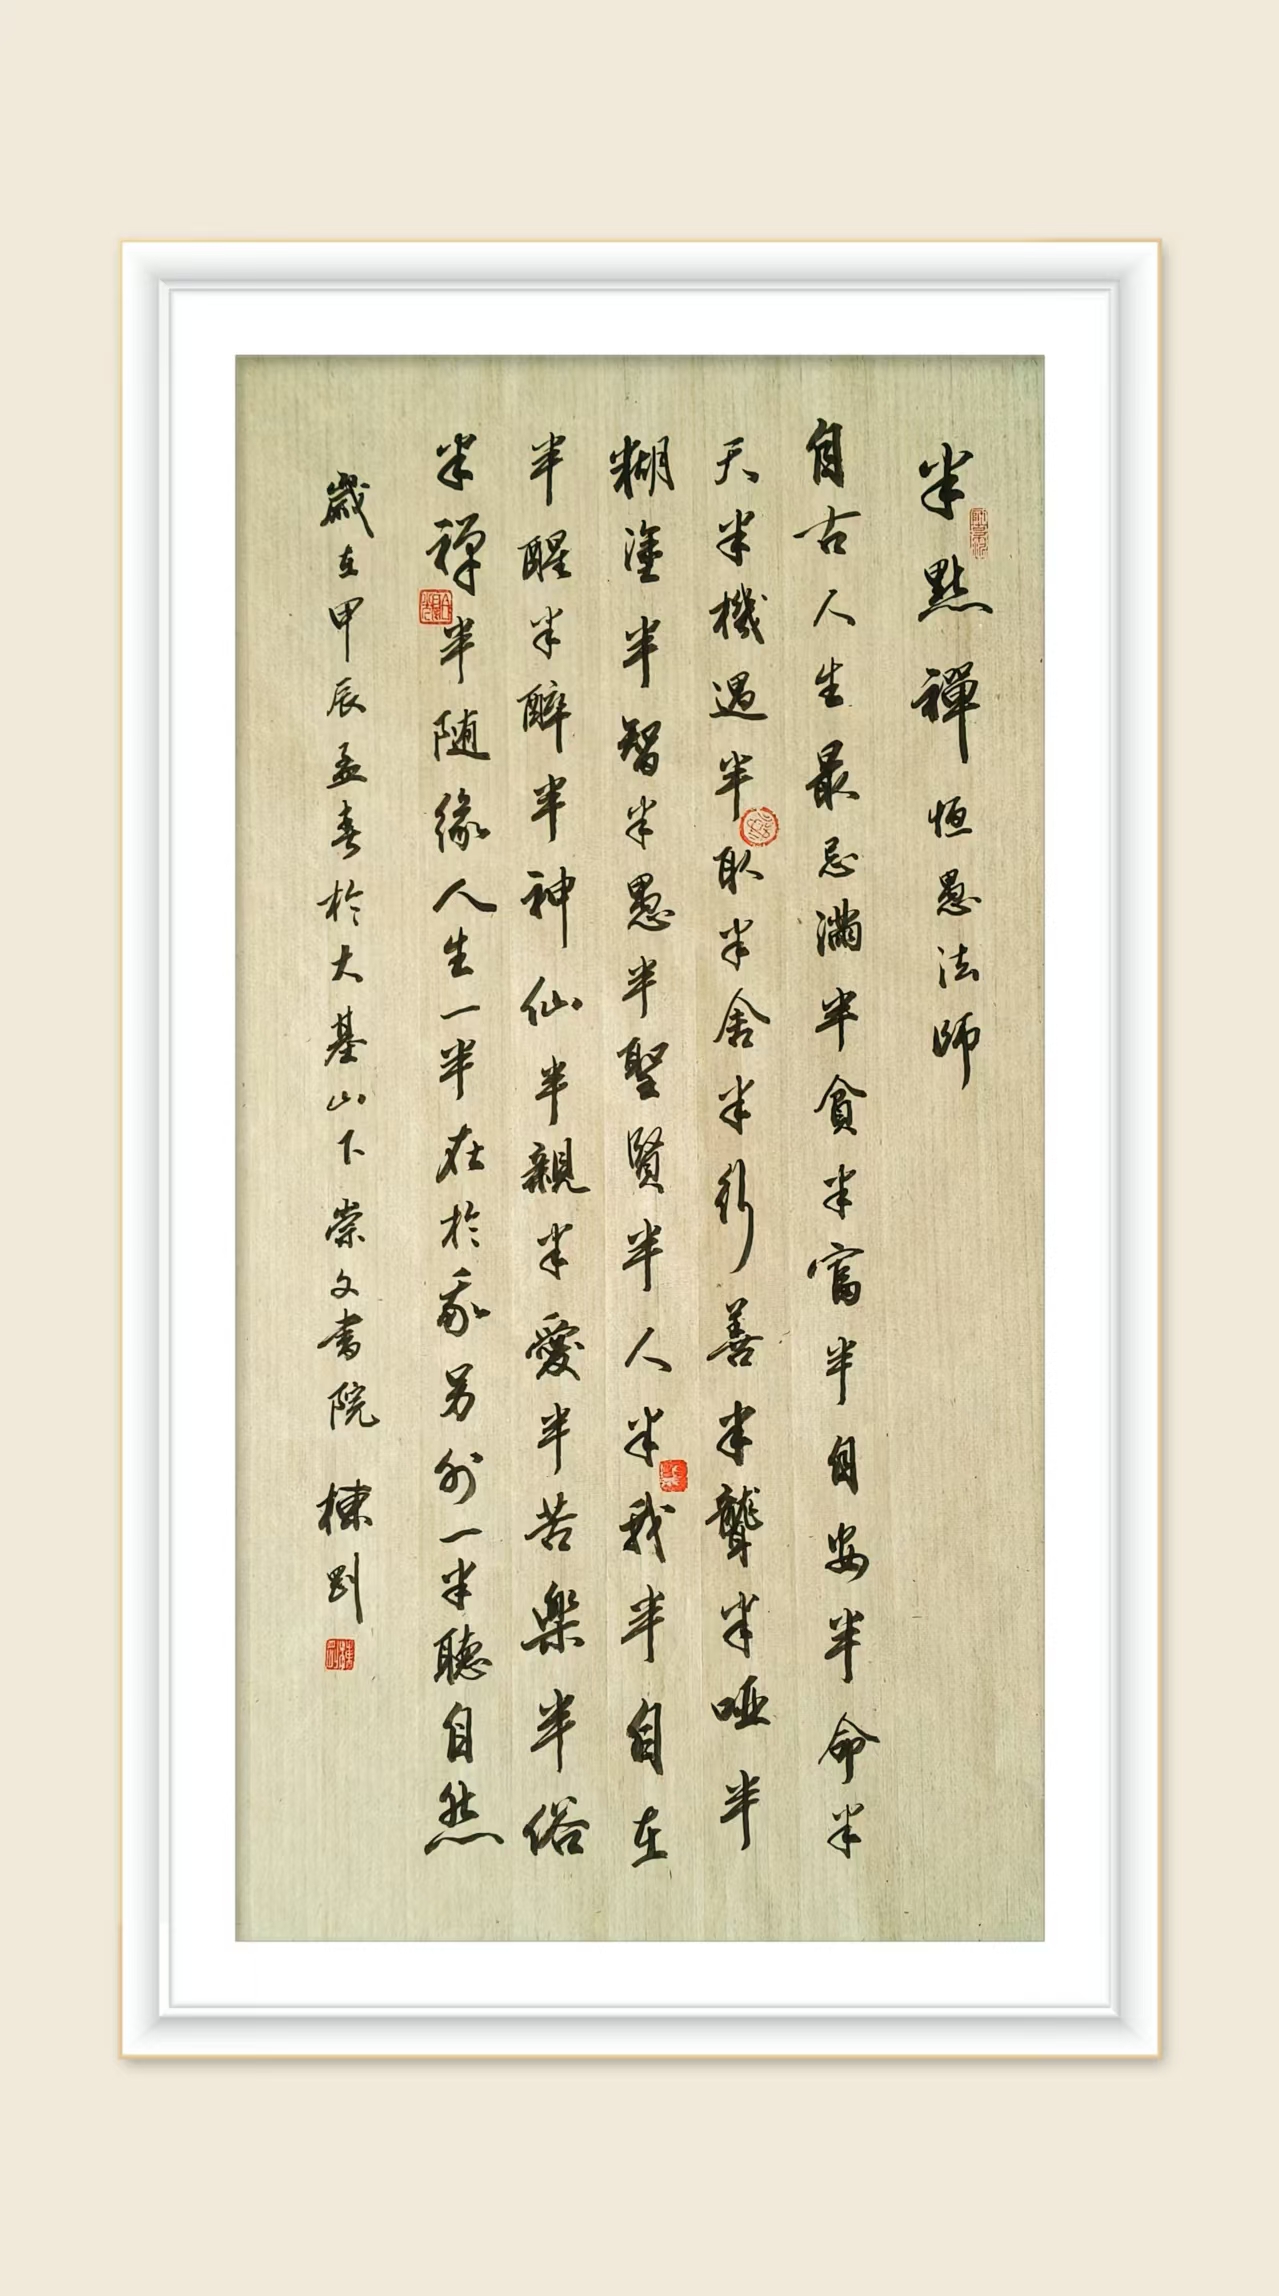 半點禪 恒愚法師
自古人生最忌滿半貪半富半自安半命半
天半機遇半取半舍半行善半聾半啞半
糊塗半智半愚半聖賢半人半我半自在
半醒半醉半神仙半親半愛半苦樂半俗
半禪半随緣人生一半在於我另外一半聽自然
歲在甲辰孟春於大基山下崇文書院 棟剛